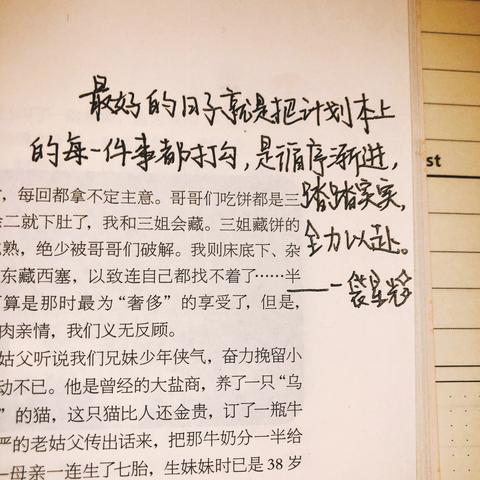 最好的日子就是把计划本上
的每一件事都打勾，是循序渐进，
踏踏实实，
全力以赴。
——袋星
st
，每回都拿不定主意。哥哥们吃饼都是三
二就下肚了，我和三姐会藏。三姐藏饼的
熟，绝少被哥哥们破解。我则床底下、杂
东藏西塞，以致连自己都找不着了……半
算是那时最为“奢侈”的享受了，但是，
肉亲情，我们义无反顾。
姑父听说我们兄妹少年侠气，奋力挽留小
动不已。他是曾经的大盐商，养了一只“乌
”的猫，这只猫比人还金贵，订了一瓶牛
严的老姑父传出话来，把那牛奶分一半给
母亲一连生了七胎，生妹妹时已是 38 岁